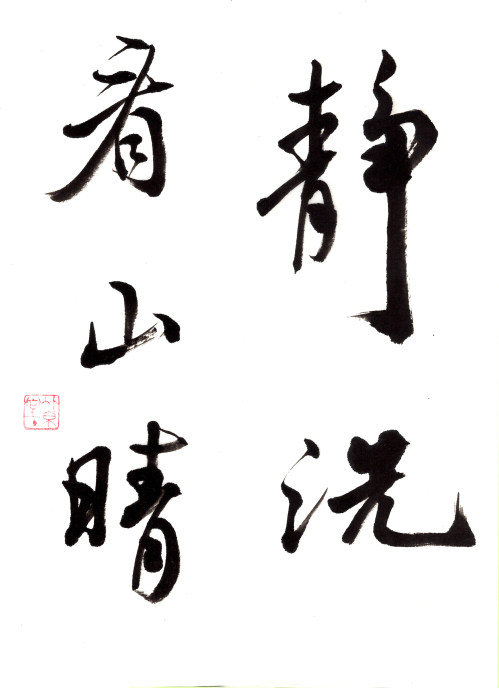 静洗
看山晴